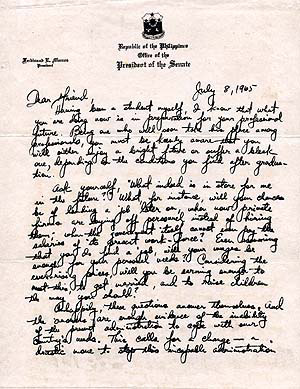 Republic of the Philippines
Office of the
President of the Senate
Ferdinand E. Marcos
President
July 8, 1965
Dear Friend
Having been a student myself, I know that what
you are doing now is in preparation for your professional
future. Being one who will soon take his place among
professionals, you must be keenly aware that you
will either enjoy a bright fate or suffer a bleak
one, depending on the conditions you find after gradua-
tion.
Ask yourself, "What indeed is in store for me
in the future? What for instance, will your chances
be of landing a job later on, when now private
firms are laying off personnel instead of hiring
them, when the government itself cannot even pay the
salaries of its present work-force? Even assuming
that you do land a job, will your wages be
enough for your personal needs? Considering the
ever-rising prices, will you be earning enough to
to get married, and to raise children
the way you should?
these questions answer themselves, and
the answers are enough evidence of the inability
of the present administration to cope with our
country's needs. This calls for a change — a
drastic move to stop this incapable administration